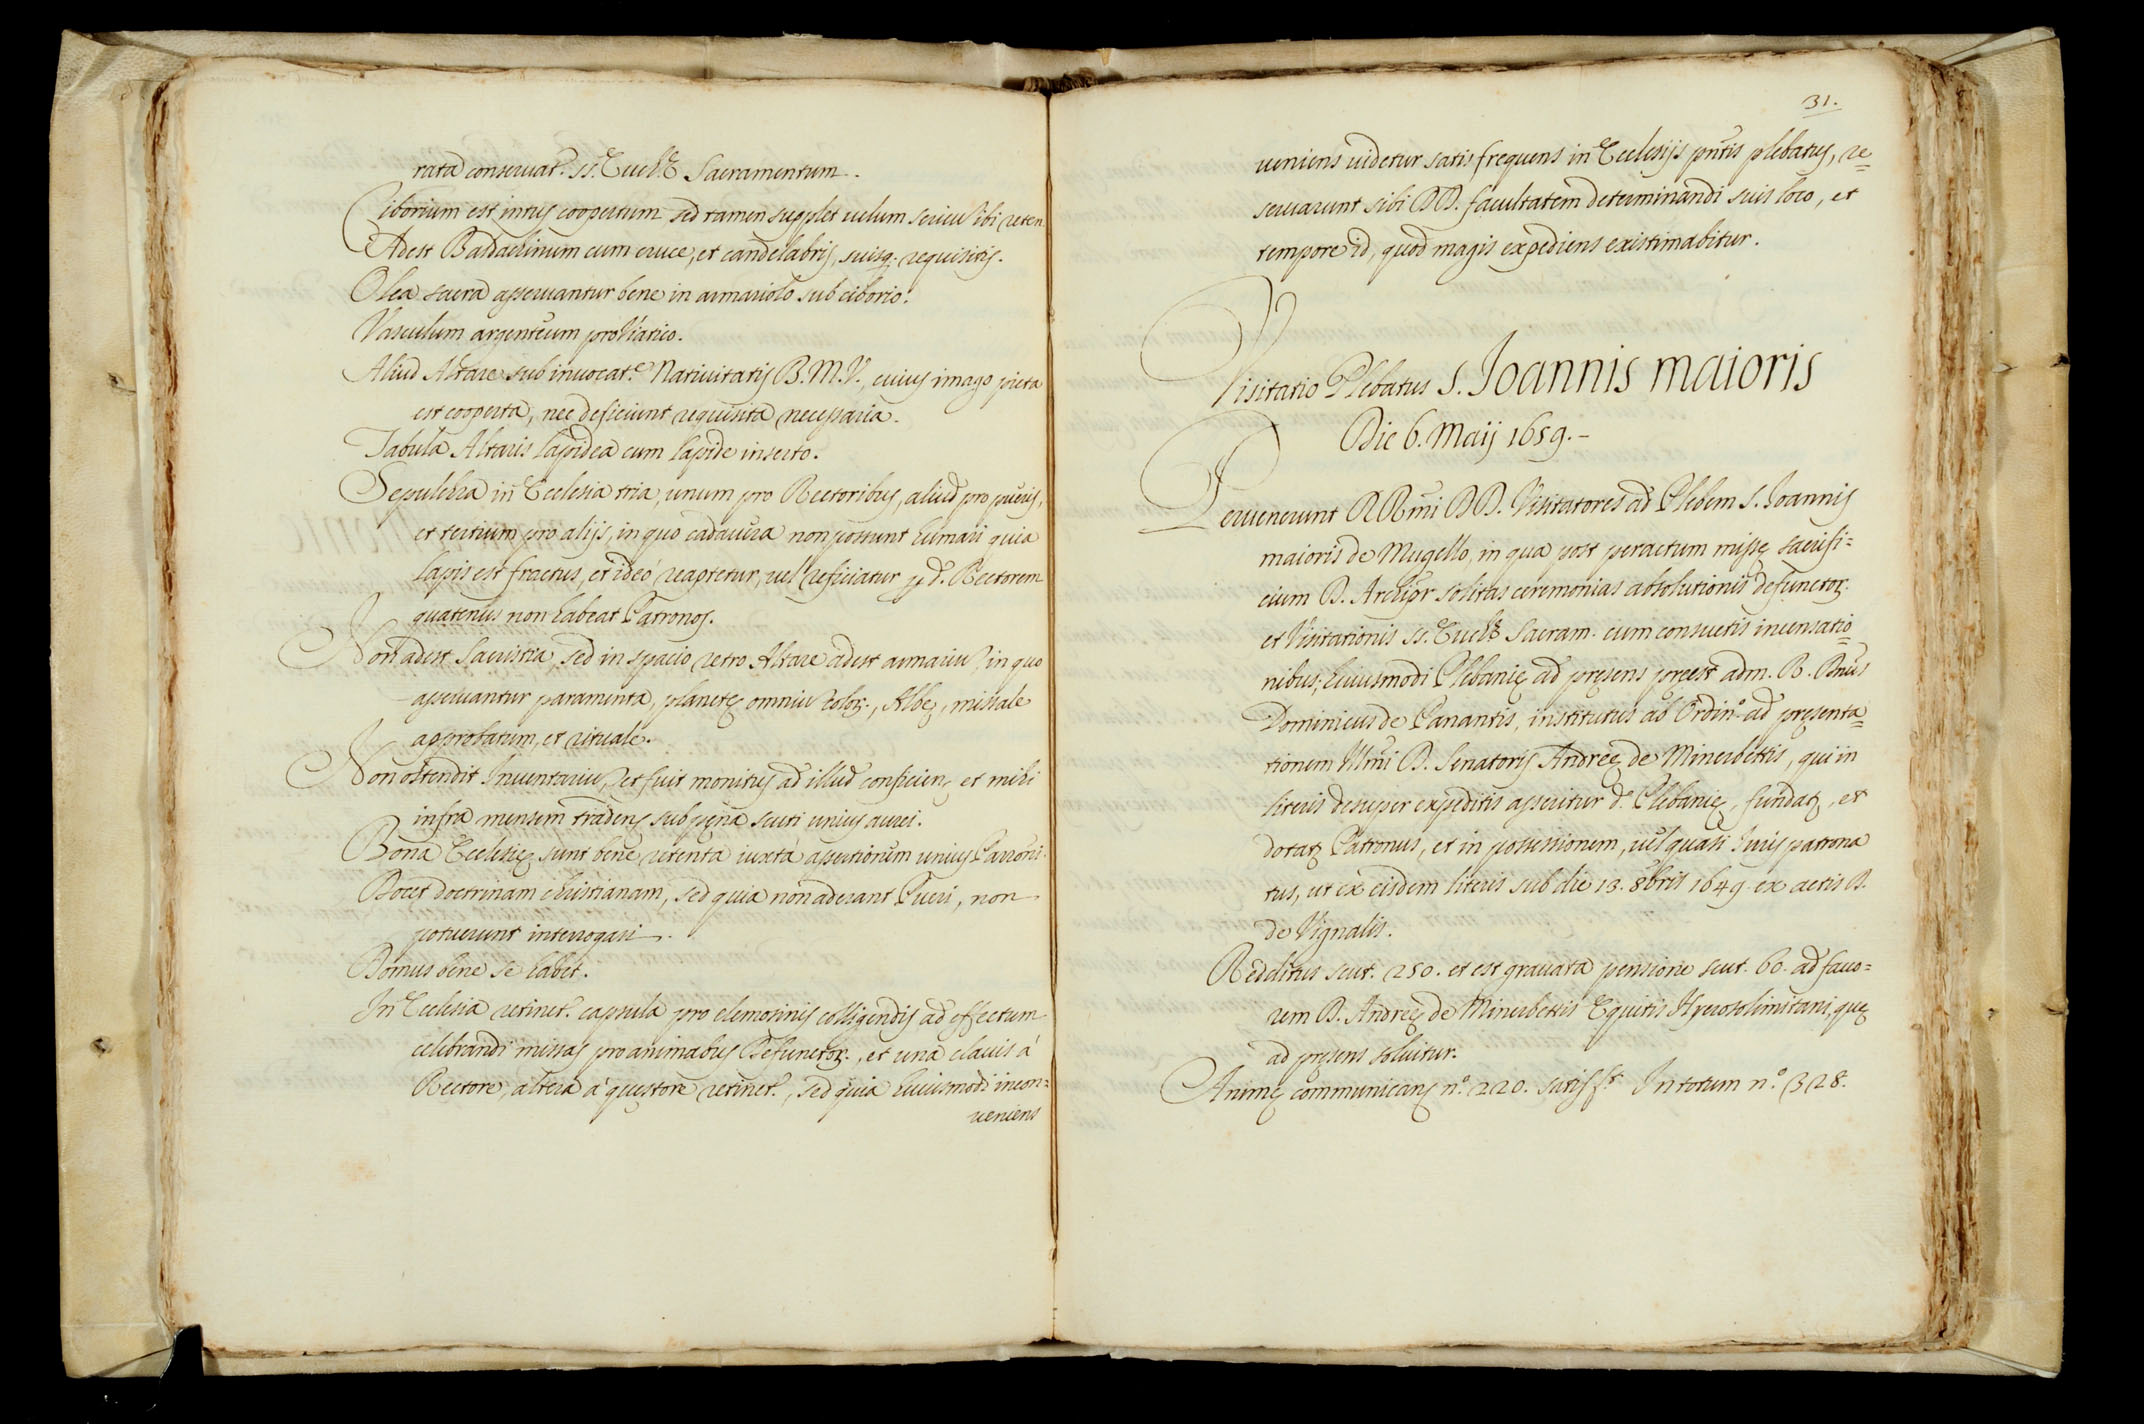 rata conseruat.r ss. Euch.ę Sacramentum.
Ciborium est intus coopertum sed tamen supplet uelum sericū ibi reten.
Adest Baldachinum cum cruce, et candelabris, suisq. requisitis.
Olea sacra asseruantur bene in armariolo sub ciborio.
Vasculum argenteum pro Viatico.
Aliud Altare sub inuocat.e Natiuitatis B. M. V., cuius imago picta
est cooperta, nec deficiunt requisita necessaria.
Tabula Altaris lapidea cum lapide inserto.
Sepulchra in Ecclesia tria, unum pro Rectoribus, aliud pro pueris,
et tertium pro alijs, in quo cadauera non possunt humari quia
lapis est fractus, et ideò reaptetur, uel reficiatur p d. Rectorem
quatenus non habeat Patronos.
Non adest Sacristia, sed in spacio retro Altare adest armariū, in quo
asseruantur paramenta, planetę omniū color., Albę, missale
approbatum, et rituale.
Non ostendit Inuentariū, et fuit monitus ad illud conficien. et mihi
infra mensem traden. sub pęna scuti unius aurei.
Bona Ecclesię sunt bene retenta iuxtà assertionem unius Parroni.
Docet doctrinam christianam, sed quia non aderant Pueri, non
potuerunt interrogari.
Domus bene se habet.
In Ecclesia retinet.r capsula pro elemosinis colligendis ad effectum
celebrandi missas pro animabus Defunctor., et una clauis à
Rectore, altera à questore retinet.r, sed quia huiusmodi incon=
ueniens
31.
ueniens uidetur satis frequens in Ecclesijs pntis plebatus, re=
seruarunt sibi DD. facultatem determinandi suis loco, et
tempore id, quod magis expediens existimabitur.
Visitatio Plebatus S. Ioannis maioris
Die 6. Maij 1659.-
Peruenerunt RRmi DD. Visitatores ad Plebem S. Ioannis
maioris de Mugello, in qua post peractum missę sacrifi=
cium D. Archipr solitas ceremonias absolutionis defunctor.
et Visitationis ss. Euch.ę Sacram. cum consuetis incensatio=
nibus; huiusmodi Plebanię ad pręsens pręest adm. R. Dnus
Dominicus de Panantis, institutus ab Ordin.o ad pręsenta=
tionem Illmi D. Senatoris Andreę de Minerbettis, qui in
literis desuper expeditis asseritur d. Plebanię, fundat., et
dotat. Patronus, et in possessionem, uel quasi Iuris patrona
tus, ut ex eisdem literis sub die 13. 8bris 1649. ex actis D.
de Vignalis.
Redditus scut. 250. et est grauata pensione scut. 60. ad fauo=
rem D. Andreę de Minerbettis Equitis Hyerosolimitani, quę
ad pręsens soluitur.
Animę communican. n.o 220. satisf.t In totum n.o 328.